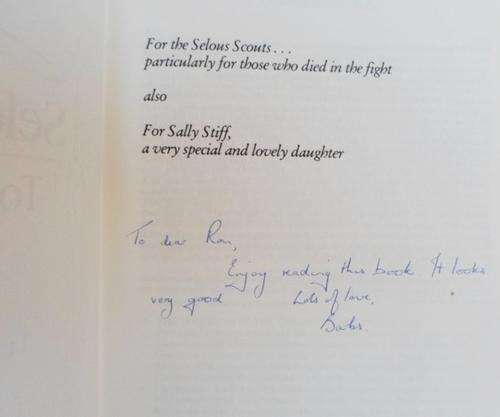 For the Selous Scouts . . .
particularly for those who died in the fight
also
For Sally Stiff,
a very special and lovely daughter
To dear Ron,
Enjoy reading this book It looks
very good
Lots of love,
Babs.